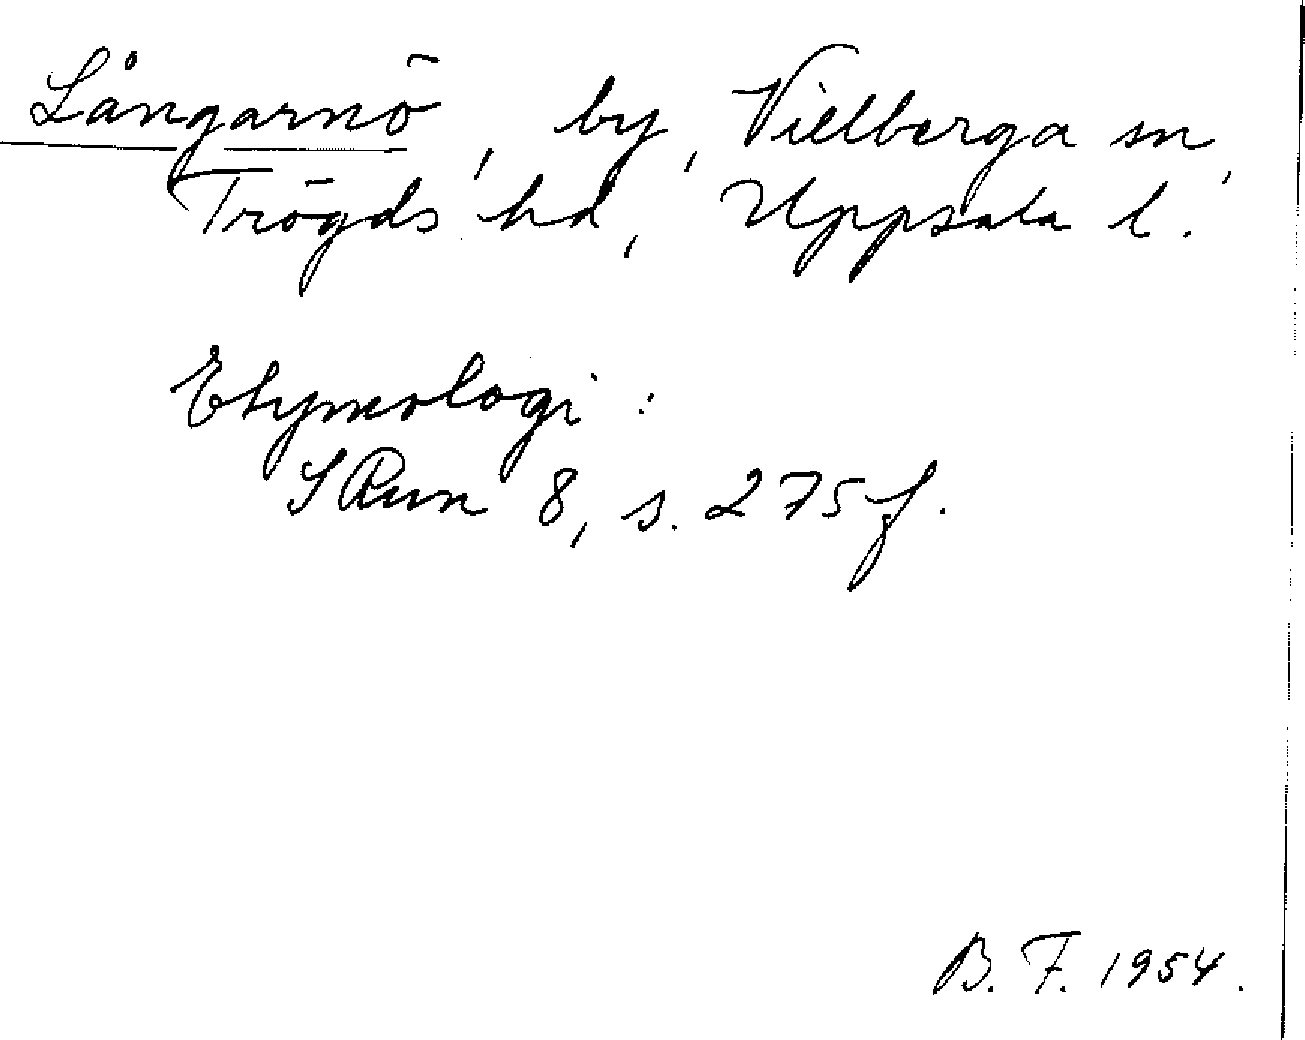 Långarnö, by, Villberga sn,
Trögds hd, Uppsala l.
Etymologi:
SRun 8, s. 275 f.
B. F. 1954.